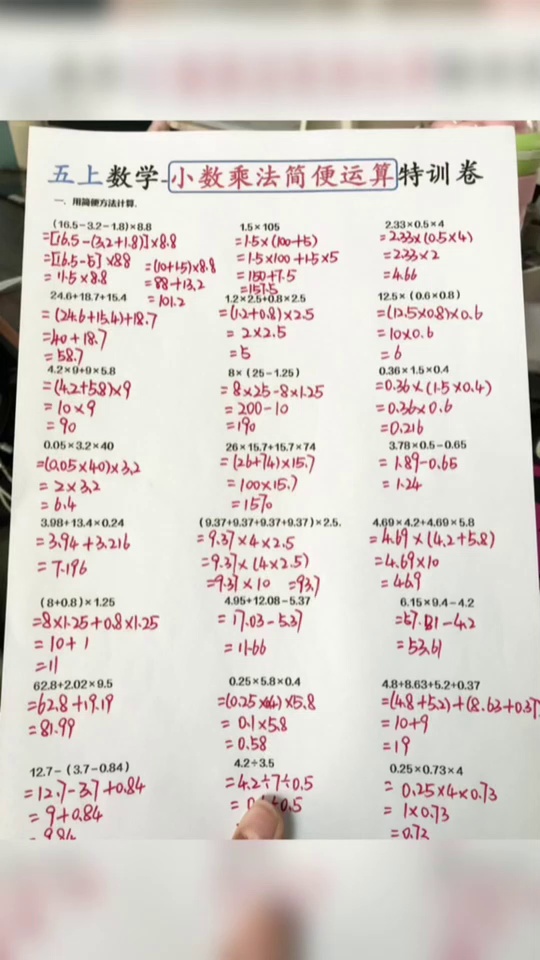 五上数学-小数乘法简便运算特训卷
一、用简便方法计算.
(16.5-3.2-1.8)×8.8
=[16.5-(3.2+1.8)]×8.8
=[16.5-5]×8.8
=11.5×8.8
=(10+1.5)×8.8
=88+13.2
=101.2
1.5×105
=1.5×(100+5)
=1.5×100+1.5×5
=150+7.5
=157.5
2.33×0.5×4
=2.33×(0.5×4)
=2.33×2
=4.66
24.6+18.7+15.4
=(24.6+15.4)+18.7
=40+18.7
=58.7
1.2×2.5+0.8×2.5
=(1.2+0.8)×2.5
=2×2.5
=5
12.5×(0.6×0.8)
=(12.5×0.8)×0.6
=10×0.6
=6
4.2×9+9×5.8
=(4.2+5.8)×9
=10×9
=90
8×(25-1.25)
=8×25-8×1.25
=200-10
=190
0.36×1.5×0.4
=0.36×(1.5×0.4)
=0.36×0.6
=0.216
0.05×3.2×40
=(0.05×40)×3.2
=2×3.2
=6.4
26×15.7+15.7×74
=(26+74)×15.7
=100×15.7
=1570
3.78×0.5-0.65
=1.89-0.65
=1.24
3.98+13.4×0.24
=3.94+3.216
=7.196
(9.37+9.37+9.37+9.37)×2.5.
=9.37×4×2.5
=9.37×(4×2.5)
=9.37×10 =93.7
4.69×4.2+4.69×5.8
=4.69×(4.2+5.8)
=4.69×10
=46.9
(8+0.8)×1.25
=8×1.25+0.8×1.25
=10+1
=11
4.95+12.08-5.37
=17.03-5.37
=11.66
6.15×9.4-4.2
=57.81-4.2
=53.61
62.8+2.02×9.5
=62.8+19.19
=81.99
0.25×5.8×0.4
=(0.25×0.4)×5.8
=0.1×5.8
=0.58
4.8+8.63+5.2+0.37
=(4.8+5.2)+(8.63+0.37
=10+9
=19
12.7-(3.7-0.84)
=12.7-3.7+0.84
=9+0.84
=9.84
4.2÷3.5
=4.2÷7÷0.5
0.25×0.73×4
=0.25×4×0.73
=1×0.73
=0.73